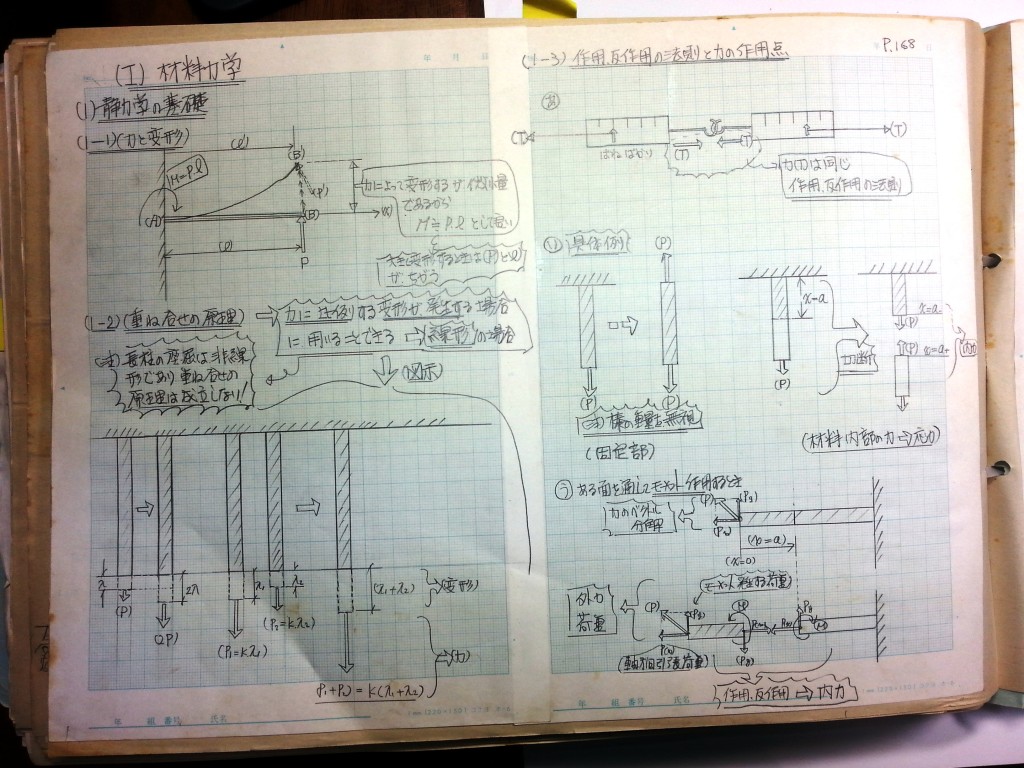 (I) 材料力学
(1) 静力学の基礎
(1-1)(力と変形)
(l')
M=P.l
(B')
(P')
(A)
(B)
(x)
(l)
P
力によって変形するが、微小量
であるから
M≒P.lとして良い
(1-2)(重ね合せの原理)
力に比例する変形が発生する場合
に用いることできる→線形の場合
(注)長柱の座屈は非線
形であり重ね合せの
原理は成立しない!
(図示)
λ
(P)
2λ
(2P)
λ1
(P1=kλ1)
λ2
(P2=kλ2)
(λ1+λ2)
(変形)
(力)
P1+P2=k(λ1+λ2)
年 組 番号 氏名
年 月 日
P.168
(1-3) 作用、反作用の法則と力の作用点
(T)
ばねばかり
(T)
(T)
(T)
力(T)は同じ
作用、反作用の法則
具体例
(P)
(P)
(P)
(注)棒の重量を無視
(固定部)
x=a
(P)
切断
(P)
x=a-
(P)
x=a+
内力
(材料内部の力→応力)
ある面を通してモーメント作用するとき
力のベクトル
分解
(P)
(Py)
(Px)
(x=a)
(x=0)
モーメント発生する荷重
外力
荷重
(P)
Py
P(x)
(M)
(Py)
Py
(M)
(軸方向引張荷重)
作用、反作用→内力
年 組 番号 氏名